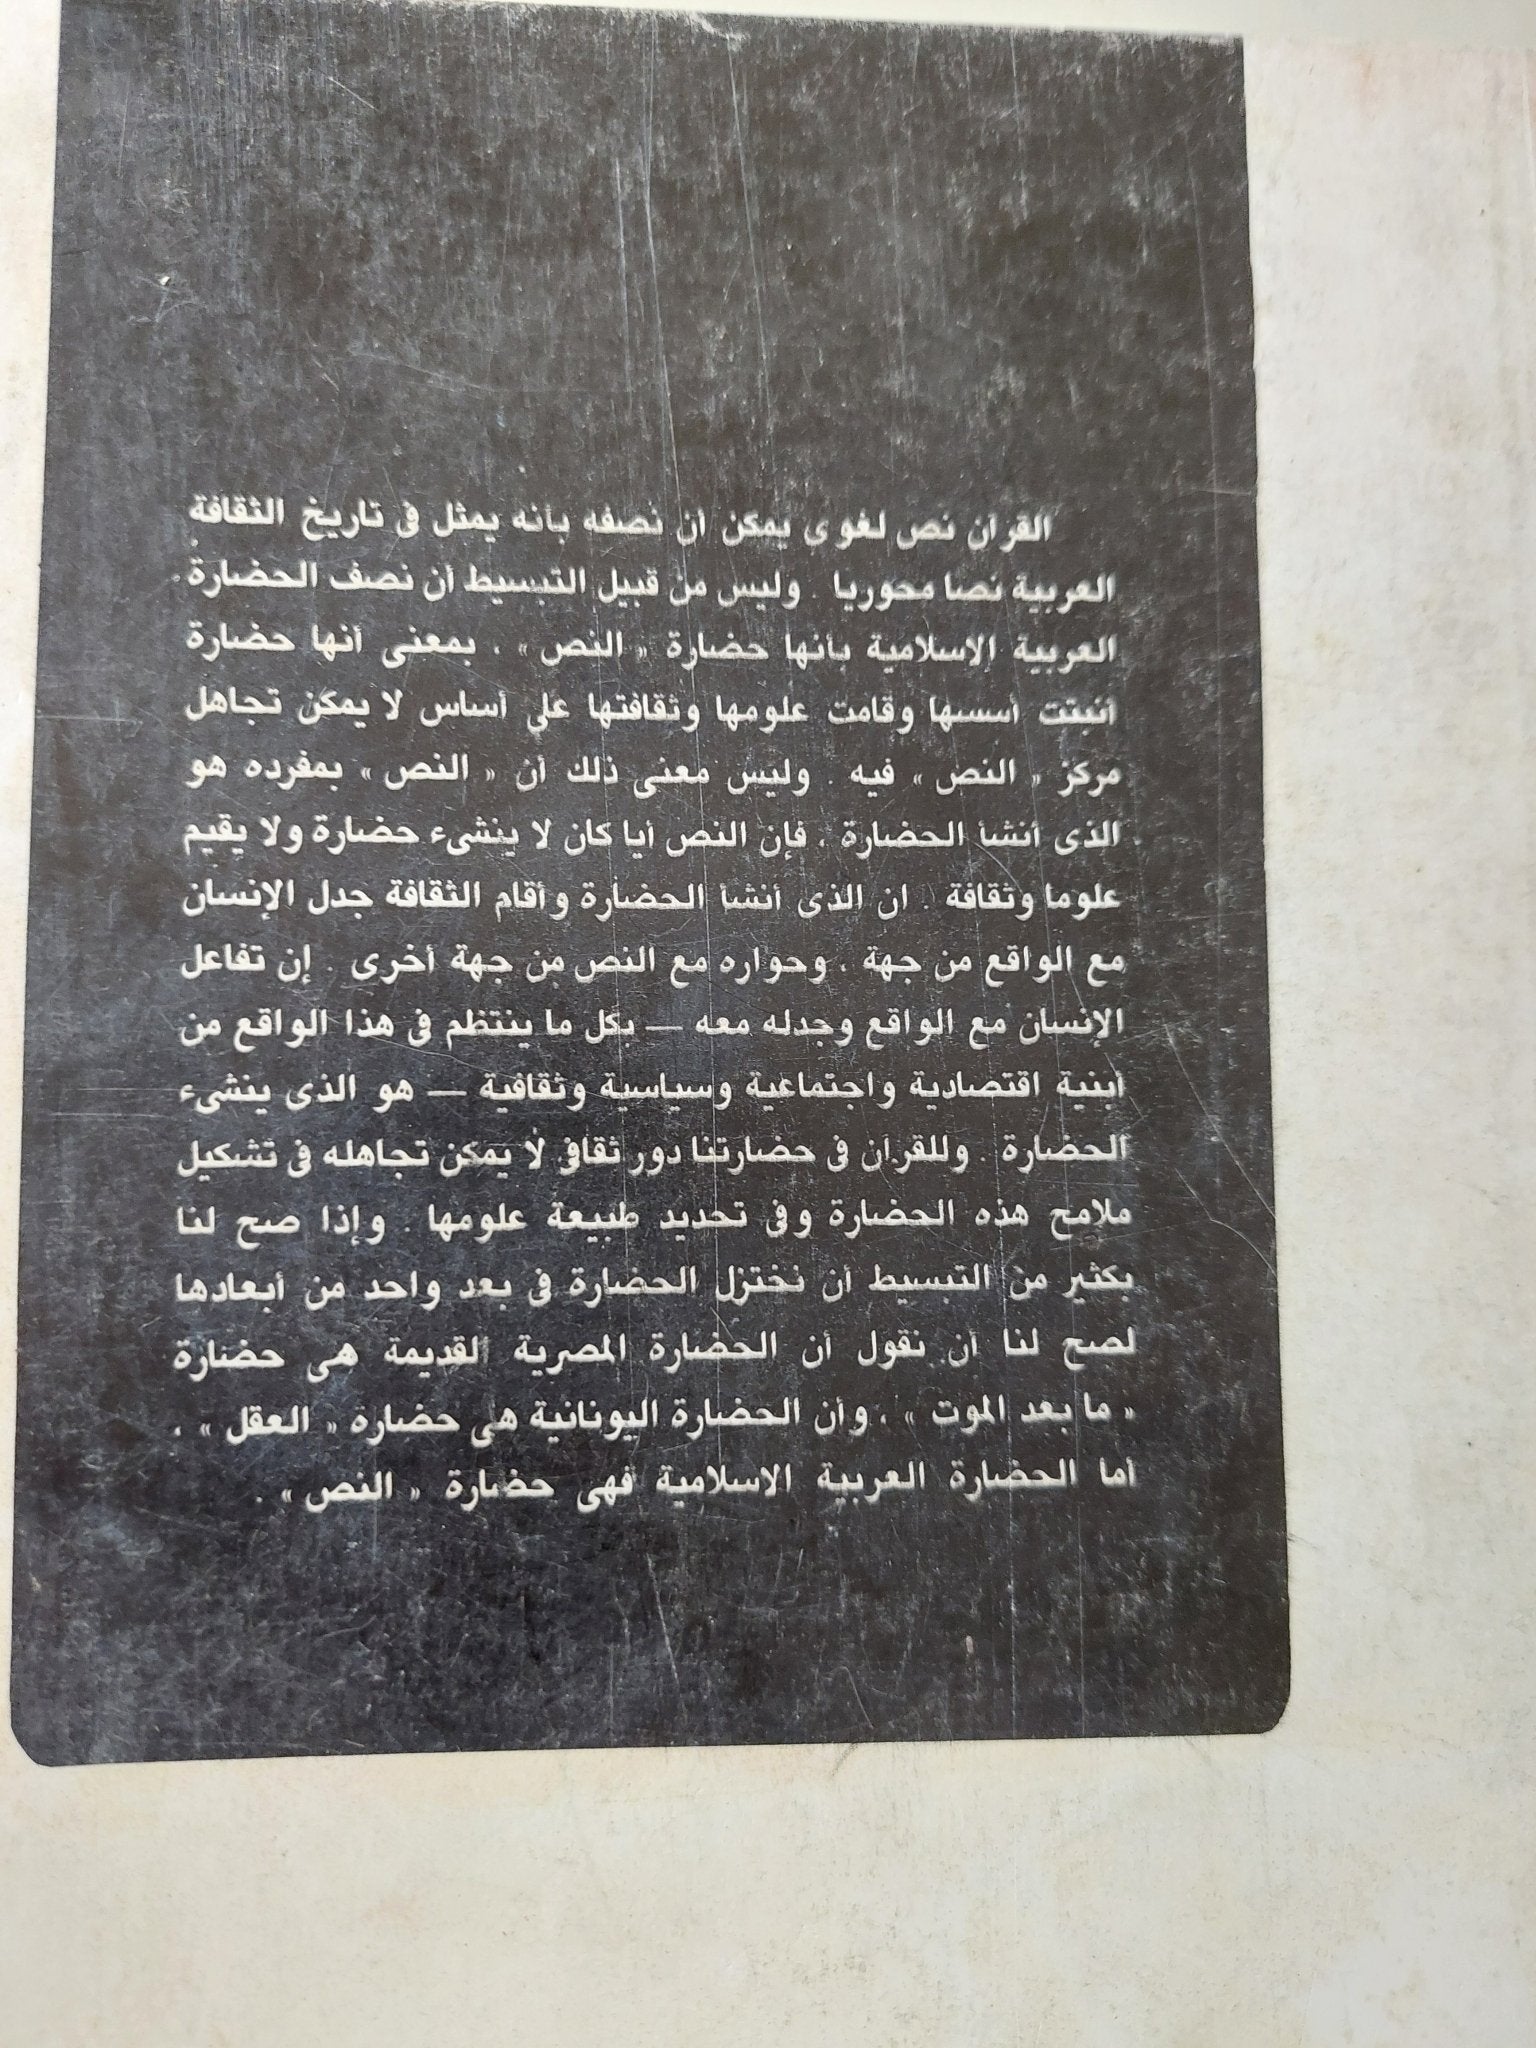 القرآن نص لغوى يمكن أن نصفه بأنه يمثل فى تاريخ الثقافة
العربية نصا محوريا . وليس من قبيل التبسيط أن نصف الحضارة
العربية الاسلامية بأنها حضارة « النص » ، بمعنى أنها حضارة
أنبتت أسسها وقامت علومها وثقافتها على أساس لا يمكن تجاهل
مركز « النص » فيه . وليس معنى ذلك أن « النص » بمفرده هو
الذى أنشأ الحضارة ، فإن النص أيا كان لا ينشىء حضارة ولا يقيم
علوما وثقافة . ان الذى أنشأ الحضارة وأقام الثقافة جدل الإنسان
مع الواقع من جهة ، وحواره مع النص من جهة أخرى . إن تفاعل
الإنسان مع الواقع وجدله معه — بكل ما ينتظم فى هذا الواقع من
أبنية اقتصادية واجتماعية وسياسية وثقافية — هو الذى ينشىء
الحضارة . وللقرآن فى حضارتنا دور ثقافى لا يمكن تجاهله فى تشكيل
ملامح هذه الحضارة وفى تحديد طبيعة علومها . وإذا صح لنا
بكثير من التبسيط أن نختزل الحضارة فى بعد واحد من أبعادها
لصح لنا أن نقول أن الحضارة المصرية القديمة هى حضارة
« ما بعد الموت » ، وأن الحضارة اليونانية هى حضارة « العقل » ،
أما الحضارة العربية الاسلامية فهى حضارة « النص » .